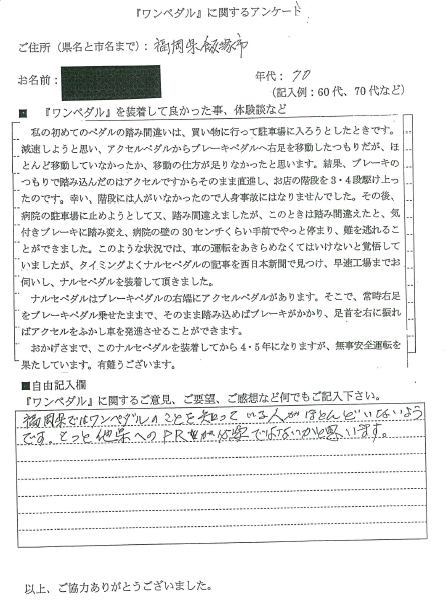 『ワンペダル』に関するアンケート
ご住所（県名と市名まで）：福岡県飯塚市
お名前：
年代：70
（記入例：60代、70代など）
■『ワンペダル』を装着して良かった事、体験談など
私の初めてのペダルの踏み間違いは、買い物に行って駐車場に入ろうとしたときです。
減速しようと思い、アクセルペダルからブレーキペダルへ右足を移動したつもりだが、ほ
とんど移動していなかったか、移動の仕方が足りなかったと思います。結果、ブレーキの
つもりで踏み込んだのはアクセルですからそのまま直進し、お店の階段を3・4段駆け上っ
たのです。幸い、階段には人がいなかったので人身事故にはなりませんでした。その後、
病院の駐車場に止めようとして又、踏み間違えましたが、このときは踏み間違えたと、気
付きブレーキに踏み変え、病院の壁の30センチくらい手前でやっと停まり、難を逃れるこ
とができました。このような状況では、車の運転をあきらめなくてはいけないと覚悟して
いましたが、タイミングよくナルセペダルの記事を西日本新聞で見つけ、早速工場までお
伺いし、ナルセペダルを装着して頂きました。
ナルセペダルはブレーキペダルの右端にアクセルペダルがあります。そこで、常時右足
をブレーキペダル乗せたままで、そのまま踏み込めばブレーキがかかり、足首を右に振れ
ばアクセルをふかし車を発進させることができます。
おかげさまで、このナルセペダルを装着してから4・5年になりますが、無事安全運転を
果たしています。有難うございます。
■自由記入欄
『ワンペダル』に関するご意見、ご要望、ご感想など何でもご記入下さい。
福岡県ではワンペダルのことを知っている人がほとんどいないよう
です。もっと他県へのPRが必要ではないかと思います。
以上、ご協力ありがとうございました。